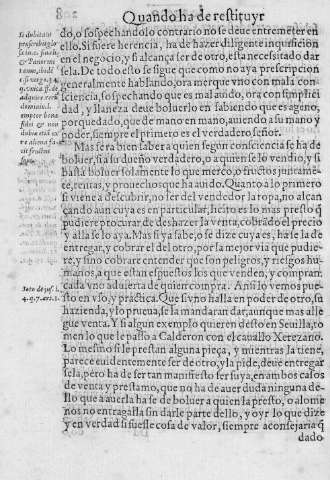 Quando ha de restituyr
do, o sospechando lo contrario no se deue entremeter en
ello. Si fuere herencia, ha de hazer diligente inquisicion
en el negocio, y si alcança ser de otro, esta necessitado dar
sela. De todo esto se sigue que como no aya prescripcion
generalmente hablando, ora merque vno con mala con-
sciencia, sospechando que es mal auido, ora con simplici
dad, y llaneza deue boluerlo en sabiendo que es ageno,
por quedado, que de mano en mano, auiendo a su mano y
poder, siempre el primero es el verdadero señor.
Mas sera bien saber a quien segun consciencia se ha de
boluer, si a su dueño verdadero, o a quien se lo vendio, y si
basta boluer solamente lo que merco, o fructos juntame-
te, rentas, y prouechos que ha auido. Quanto a lo primero
si viene a descubrir, no ser del vendedor la ropa, no alcan
çando aun cuya es en particular, licito es lo mas presto q̃
pudiere procurar de deshazer la venta, cobrado el precio
y alla se lo aya. Mas si ya sabe, o se dize cuya es, ha se la de
entregar, y cobrar el del otro, por la mejor via que pudie
re, y sino cobrare entender que son peligros, y riesgos hu
manos, a que estan espuestos los que venden, y compran:
cada vno aduierta de quien compra. Ansi lo vemos pue-
sto en vso, y practica. Que si vno halla en poder de otro, su
hazienda, y lo prueua, se la mandaran dar, aunque mas alle
gue venta. Y si algun exemplo quieren desto en Seuilla, to
men lo que le passo a Calderon con el cauallo Xerezano.
Lo mesmo si le prestan alguna pieça, y mientras la tiene,
parece euidentemente ser de otro, y la pide, deue entregar
sela, pero ha de ser tan manifesto ser suya, en ambos casos
de venta y prestamo, que no ha de auer duda ninguna de
llo que a auerla ha se de boluer a quien la presto, o alome
nos no entregalla sin darle parte dello, y oyr lo que dize
y en verdad si fuesse cosa de valor, siempre aconsejaria q̃
dado
Si dubitans